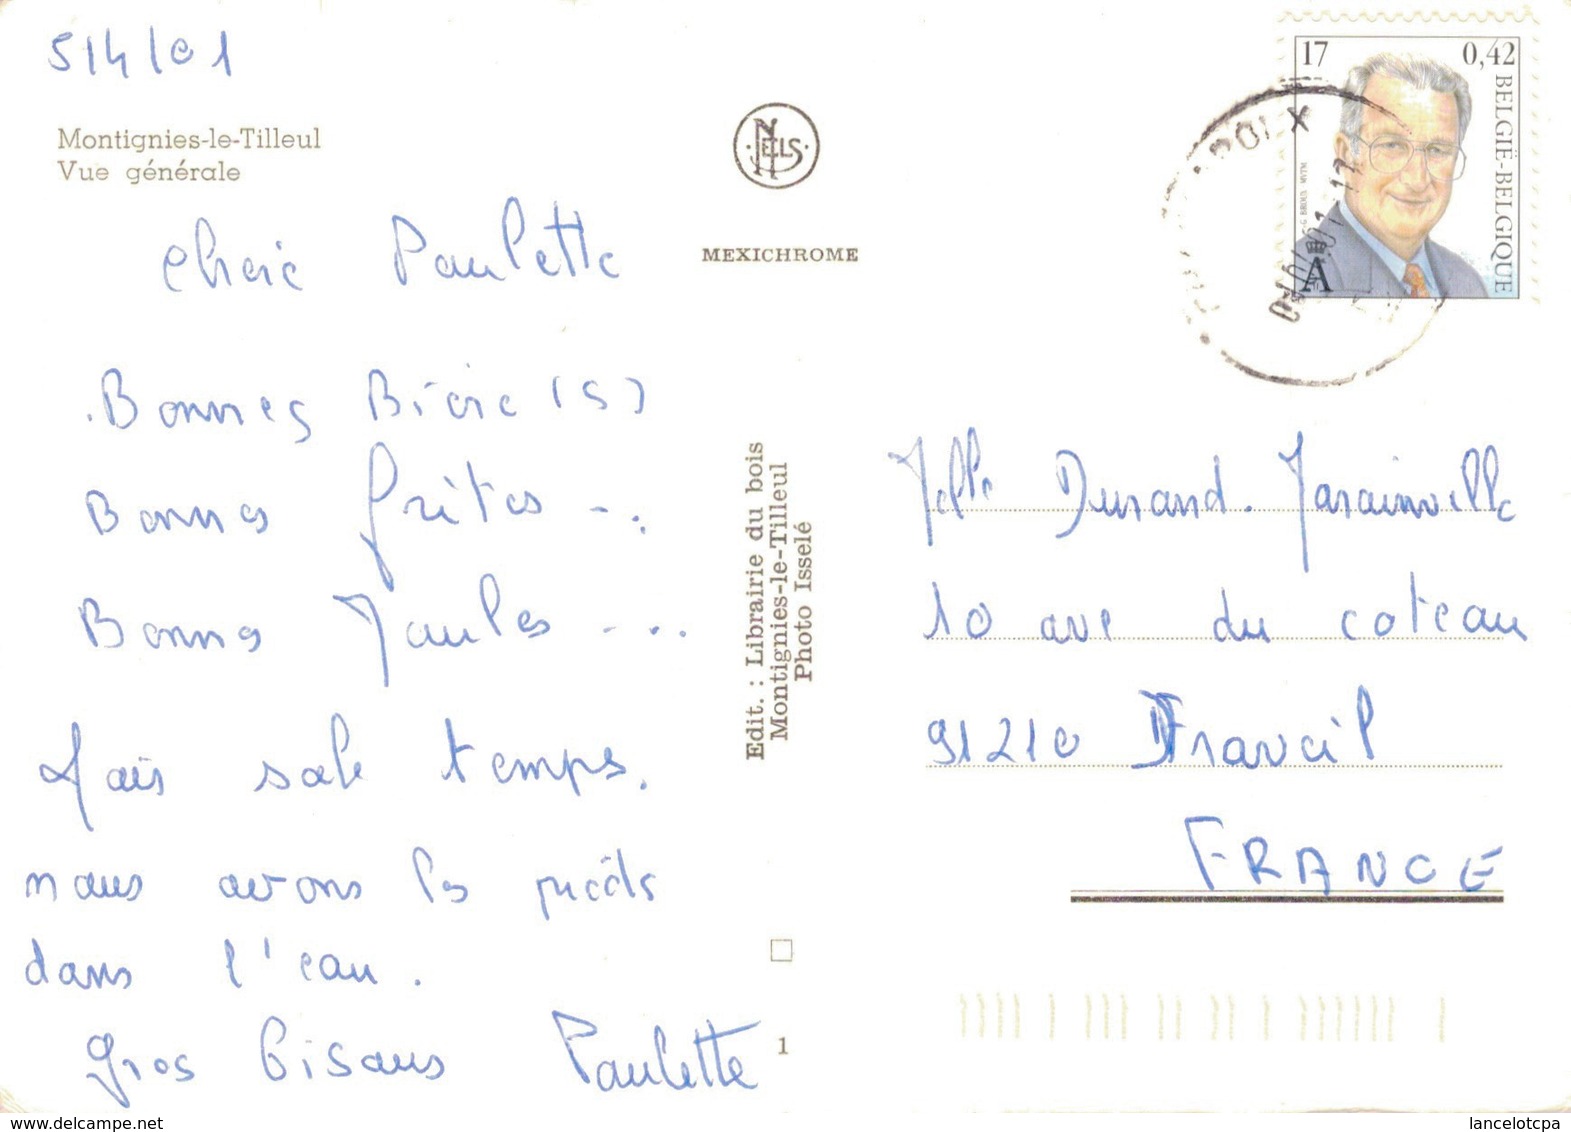 5/4/01
Montignies-le-Tilleul
Vue générale
NELS
MEXICHROME
17 0,42
BELGIË-BELGIQUE
A
Chère Paulette
Bonnes Bière(s)
Bonnes frites...
Bonnes Maules...
Mais sale temps.
nous avons les pieds
dans l'eau.
gros bisous Paulette
Edit. : Librairie du bois
Montignies-le-Tilleul
Photo Isselé
1
Melle Durand. Jarainville
10 ave du coteau
91210 Draveil
FRANCE
www.delcampe.net
lancelotcpa